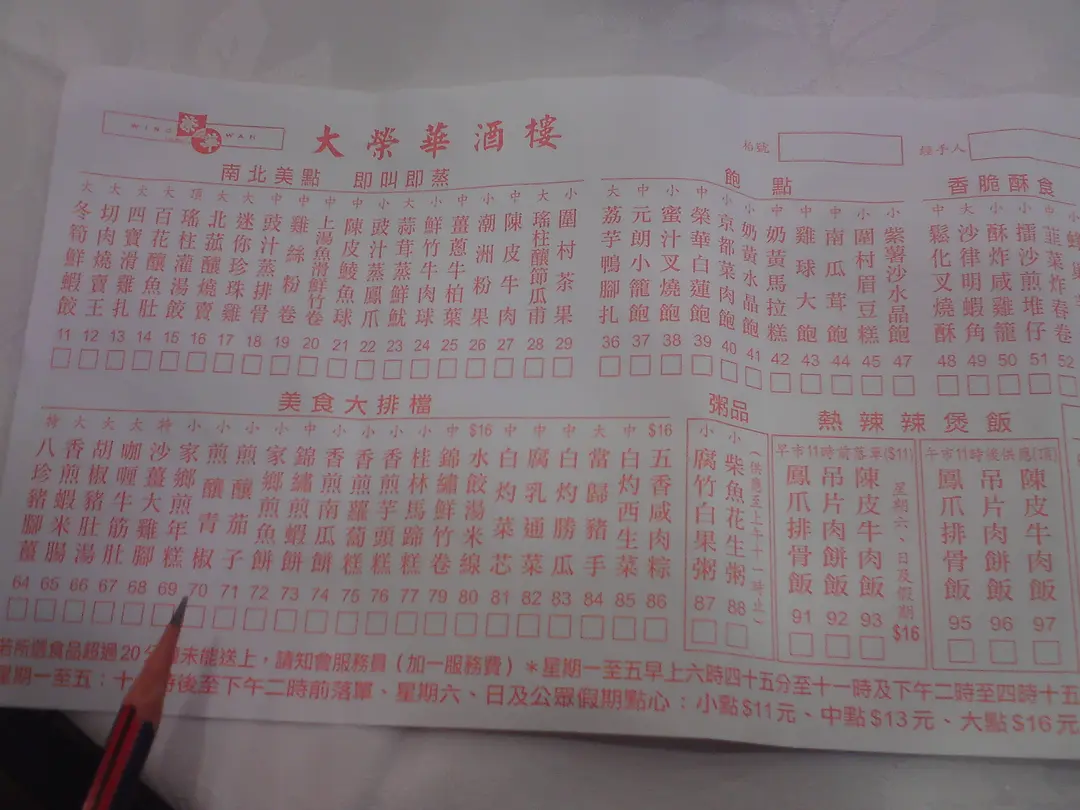 WING WAH
大榮華酒樓
枱號
經手人
南北美點 即叫即蒸
大 冬筍鮮蝦餃 11
大 切肉燒賣王 12
北 四寶滑雞扎 13
大 百花釀魚肚 14
頂 瑤柱灌湯餃 15
大 北菰釀燒賣 16
大 迷你珍珠雞 17
中 豉汁蒸排骨 18
中 雞絲粉卷 19
中 上湯魚滑鮮竹卷 20
中 陳皮鯪魚球 21
小 豉汁蒸鳳爪 22
大 蒜茸蒸鮮魷 23
中 鮮竹牛肉球 24
中 薑蔥牛柏葉 25
小 潮洲粉果 26
中 陳皮牛肉 27
大 瑤柱釀節瓜甫 28
小 圍村茶果 29
飽點
大 荔芋鴨腳扎 36
中 元朗小籠飽 37
小 蜜汁叉燒飽 38
中 榮華白蓮飽 39
小 京都菜肉飽 40
小 奶黃水晶飽 41
中 奶黃馬拉糕 42
中 雞球大飽 43
中 南瓜茸飽 44
小 圍村眉豆糕 45
小 紫薯沙水晶飽 47
香脆酥食
中 鬆化叉燒酥 48
大 沙律明蝦角 49
小 酥炸咸雞籠 50
小 擂沙煎堆仔 51
中 韮菜炸春卷 52
美食大排檔
特 八珍豬腳薑 64
大 香煎蝦米腸 65
大 胡椒豬肚湯 66
大 咖喱牛筋肚 67
大 沙薑大雞腳 68
特 家鄉煎年糕 69
小 煎釀青椒 70
小 煎釀茄子 71
小 家鄉煎魚餅 72
小 錦繡煎蝦餅 73
小 香煎南瓜糕 74
小 香煎蘿蔔糕 75
小 香煎芋頭糕 76
小 桂林馬蹄糕 77
中 錦繡鮮竹卷 79
$16 水餃湯米線 80
中 白灼菜芯 81
中 腐乳通菜 82
中 白灼勝瓜 83
大 當歸豬手 84
中 白灼西生菜 85
$16 五香咸肉粽 86
粥品
小 腐竹白果粥 87
小 柴魚花生粥 88
(供應至上午十一時止)
熱辣辣煲飯
早市11時前落單($11)
鳳爪排骨飯 91
吊片肉餅飯 92
陳皮牛肉飯 93
星期六、日及假期$16
午市11時後供應(頂)
鳳爪排骨飯 95
吊片肉餅飯 96
陳皮牛肉飯 97
若所選食品超過20分鐘未能送上，請知會服務員(加一服務費)＊星期一至五早上六時四十五分至十一時及下午二時至四時十五
星期一至五：十一時後至下午二時前落單、星期六、日及公眾假期點心：小點$11元、中點$13元、大點$16元